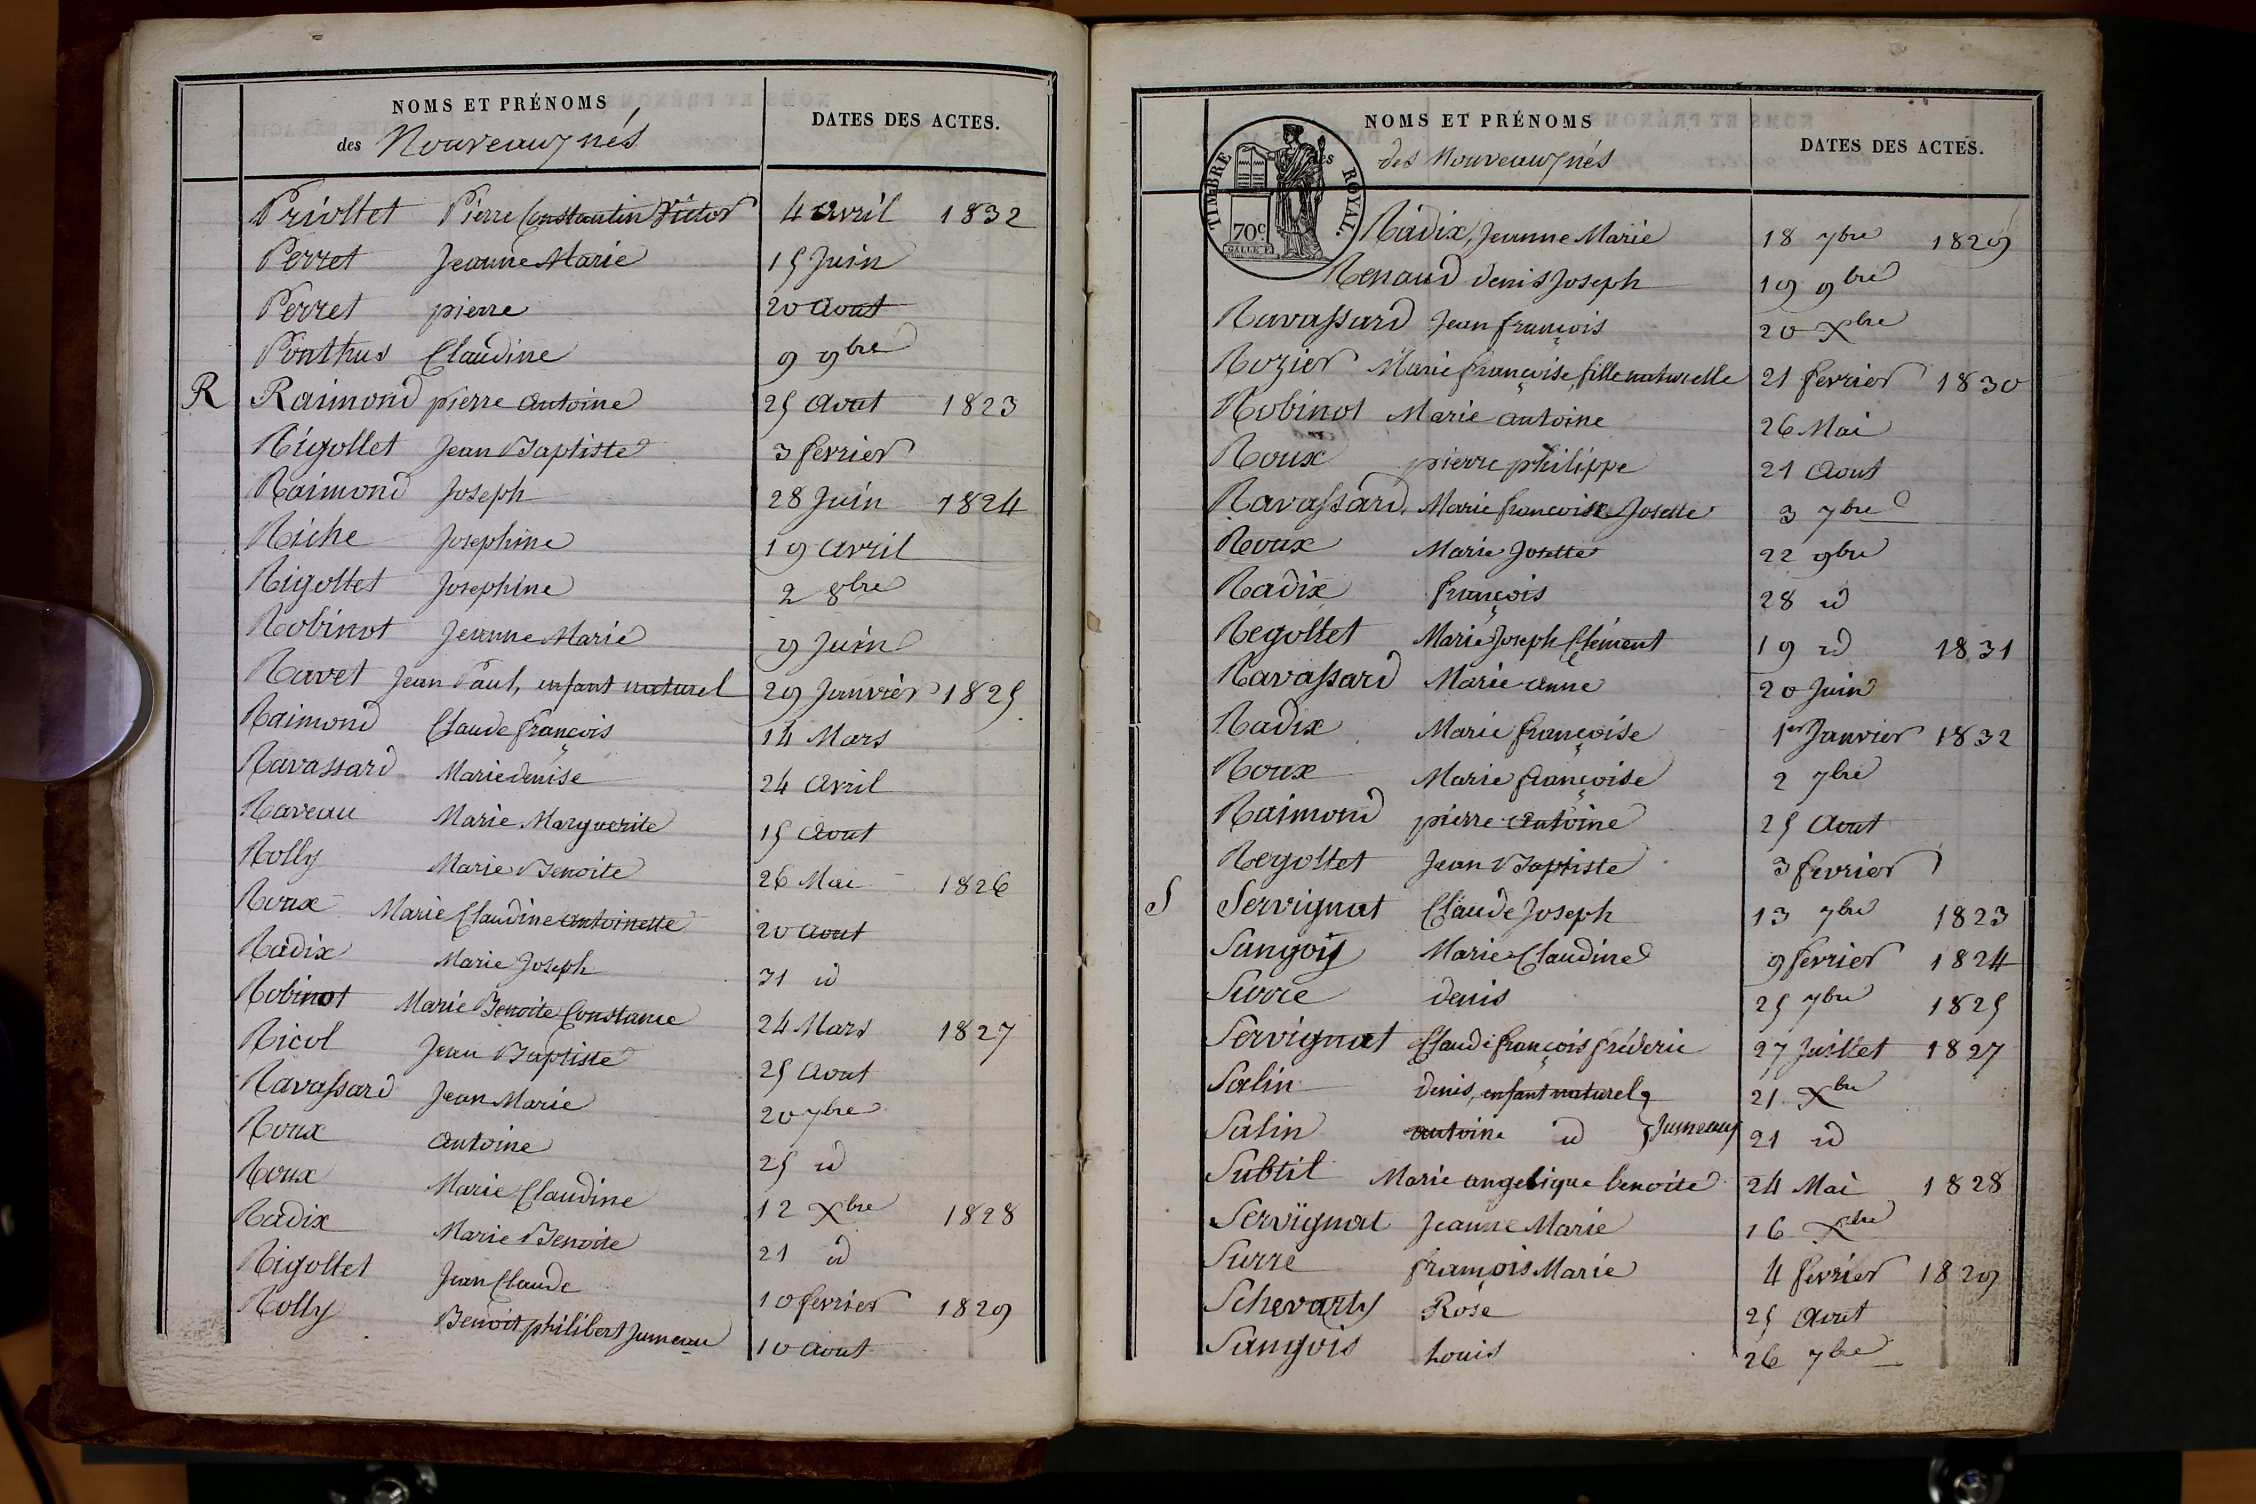 NOMS ET PRÉNOMS
des Nouveaux nés
DATES DES ACTES.
Priollet Pierre Constantin Victor 4 avril 1832
Perret Jeanne Marie 15 Juin
Perret pierre 20 Aout
Ponthus Claudine 9 9bre
R Raimond pierre antoine 25 Aout 1823
Rigollet Jean Baptiste 3 fevrier
Raimond Joseph 28 Juin 1824
Riche Josephine 19 avril
Rigollet Josephine 2 8bre
Robinot Jeanne Marie 9 Juin
Ravet Jean Paul, enfant naturel 29 Janvier 1825
Raimond Claude françois 14 Mars
Ravassard Marie denise 24 avril
Raveau Marie Marguerite 15 Aout
Rolly Marie Benoite 26 Mai 1826
Roux Marie Claudine antoinette 20 aout
Radix Marie Joseph 31 id
Robinot Marie Benoite Constance 24 Mars 1827
Ricol Jean Baptiste 25 Aout
Ravassard Jean Marie 20 7bre
Roux antoine 25 id
Roux Marie Claudine 12 Xbre 1828
Radix Marie Benoite 21 id
Rigollet Jean Claude 10 fevrier 1829
Rolly Benoit philibert Jumeau 10 aout
NOMS ET PRÉNOMS
des Nouveaux nés
DATES DES ACTES.
TIMBRE ROYAL.
70c
Radix, Jeanne Marie 18 7bre 1829
Renaud denis Joseph 19 9bre
Ravassard Jean françois 20 Xbre
Rozier Marie françoise, fille naturelle 21 fevrier 1830
Robinot Marie antoine 26 Mai
Roux pierre philippe 21 Aout
Ravassard Marie francoise Josette 3 7bre
Roux Marie Josette 22 9bre
Radix françois 28 id
Regollet Marie Joseph Clément 19 id 1831
Ravassard Marie anne 20 Juin
Radix Marie françoise 1er Janvier 1832
Roux Marie françoise 2 7bre
Raimond pierre antoine 25 Aout
Regollet Jean Baptiste 3 fevrier
S Servignat Claude Joseph 13 7bre 1823
Sangois Marie Claudine 9 fevrier 1824
Surre denis 25 7bre 1825
Servignat Claude françois fréderic 27 Juillet 1827
Salin denis, enfant naturel 21 Xbre
Salin antoine id Jumeaux 21 id
Subtil Marie angelique benoite 24 Mai 1828
Servignat Jeanne Marie 16 Xbre
Surre françois Marie 4 fevrier 1829
Schevarts Rose 25 Aout
Sangois Louis 26 7bre